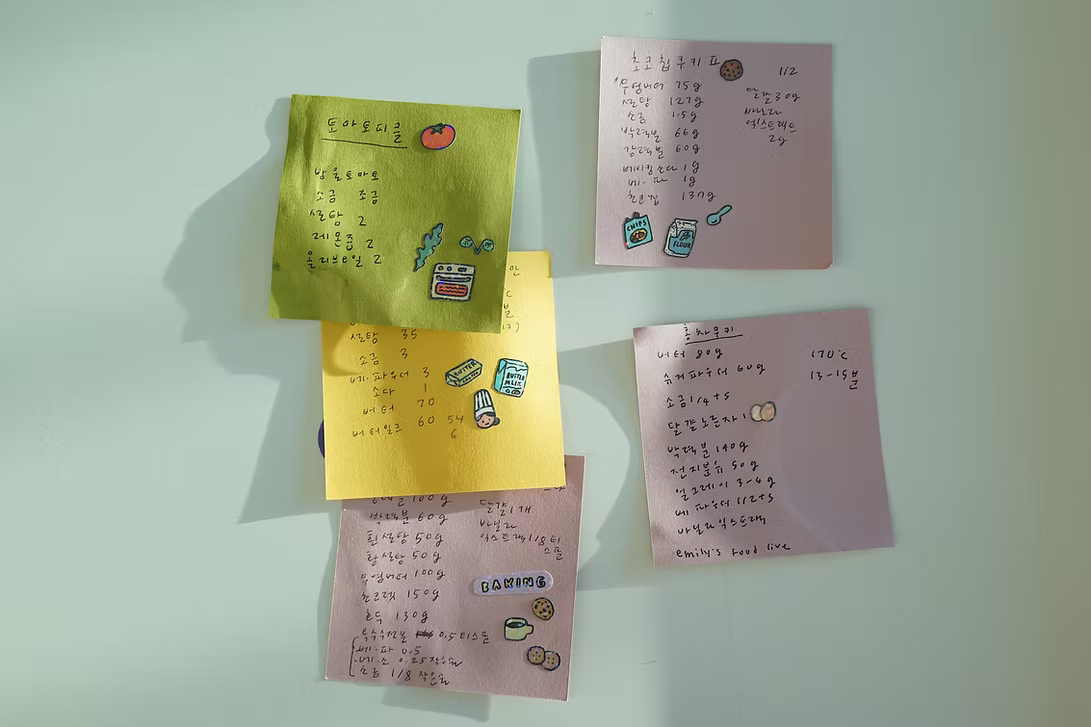 토마토피클
방울토마토
소금 조금
설탕 2
레몬즙 2
올리브오일 2
초코칩쿠키 II
1/2
*무염버터 75g
설탕 127g
소금 1.5g
박력분 66g
강력분 60g
베이킹소다 1g
베.파 1g
초코칩 137g
달걀 30g
바닐라
엑스트랙트
2g
CHIPS
FLOUR
안
설탕 35
소금 3
베.파우더 3
소다 1
버터 70
버터밀크 60 54
6
BUTTER
BUTTER
MILK
홍차쿠키
버터 80g
슈거파우더 60g
소금 1/4 ts
달걀노른자 1
박력분 140g
전지분유 50g
얼그레이 3-4g
베.파우더 1/2 ts
바닐라익스트랙
emily's food live
170°C
13-15분
100g
박력분 60g
흰설탕 50g
황설탕 50g
무염버터 100g
초코렛 150g
호두 130g
옥수수전분 0.5티스푼
베.파 0.5
베.소 0.25작은술
소금 1/8 작은술
달걀 1개
바닐라
익스트랙 1/8 티
스푼
BAKING